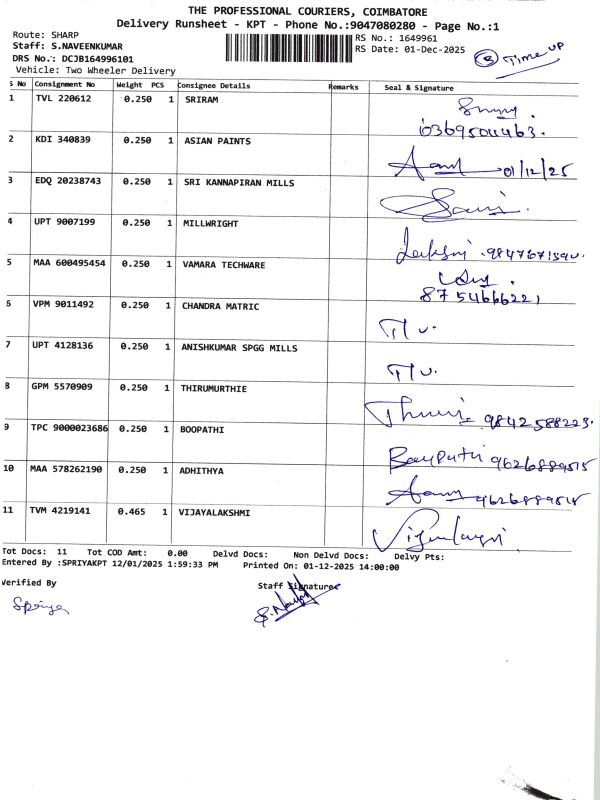 THE PROFESSIONAL COURIERS, COIMBATORE
Delivery Runsheet - KPT - Phone No.:9047080280 - Page No.:1
Route: SHARP
RS No.: 1649961
Staff: S.NAVEENKUMAR
RS Date: 01-Dec-2025
DRS No.: DCJB164996101
Vehicle: Two Wheeler Delivery
2 Time up
S No Consignment No Weight PCS Consignee Details Remarks Seal & Signature
1 TVL 220612 0.250 1 SRIRAM
2 KDI 340839 0.250 1 ASIAN PAINTS 01/12/25
3 EDQ 20238743 0.250 1 SRI KANNAPIRAN MILLS
4 UPT 9007199 0.250 1 MILLWRIGHT
5 MAA 600495454 0.250 1 VAMARA TECHWARE 8754666221
6 VPM 9011492 0.250 1 CHANDRA MATRIC
7 UPT 4128136 0.250 1 ANISHKUMAR SPGG MILLS
8 GPM 5570909 0.250 1 THIRUMURTHIE 9842588223.
9 TPC 9000023686 0.250 1 BOOPATHI 9626889515
10 MAA 578262190 0.250 1 ADHITHYA
11 TVM 4219141 0.465 1 VIJAYALAKSHMI
Tot Docs: 11 Tot COD Amt: 0.00 Delvd Docs: Non Delvd Docs: Delvy Pts:
Entered By :SPRIYAKPT 12/01/2025 1:59:33 PM Printed On: 01-12-2025 14:00:00
Verified By Staff Signature
Spriya